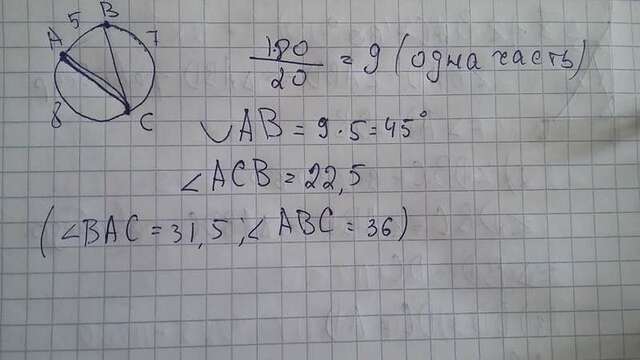 A
5
B
8
C
7
180/20 = 9 (одна часть)
◡AB = 9·5=45°
∠ACB = 22,5
(∠BAC = 31,5; ∠ABC = 36)